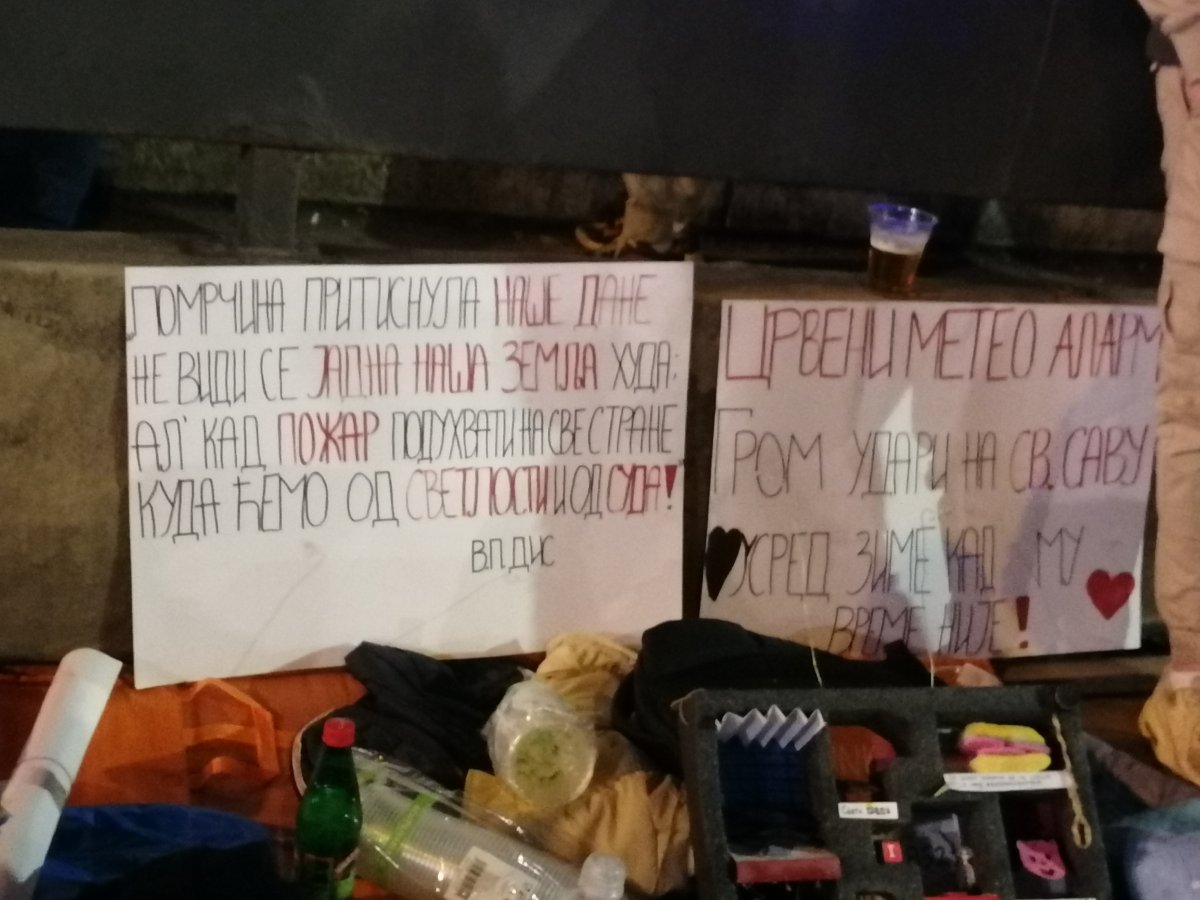 ПОМРЧИНА ПРИТИСНУЛА НАШЕ ДАНЕ
НЕ ВИДИ СЕ ЈАДНА НАША ЗЕМЉА ХУДА:
АЛ' КАД ПОЖАР ПОДУХВАТИ НА СВЕ СТРАНЕ
КУДА ЋЕМО ОД СВЕТЛОСТИ И ОД СУДА!
В.П.ДИС
ЦРВЕНИ МЕТЕО АЛАРМ
ГРОМ УДАРИ НА СВ. САВУ
УСРЕД ЗИМЕ КАД МУ
ВРЕМЕ НИЈЕ!